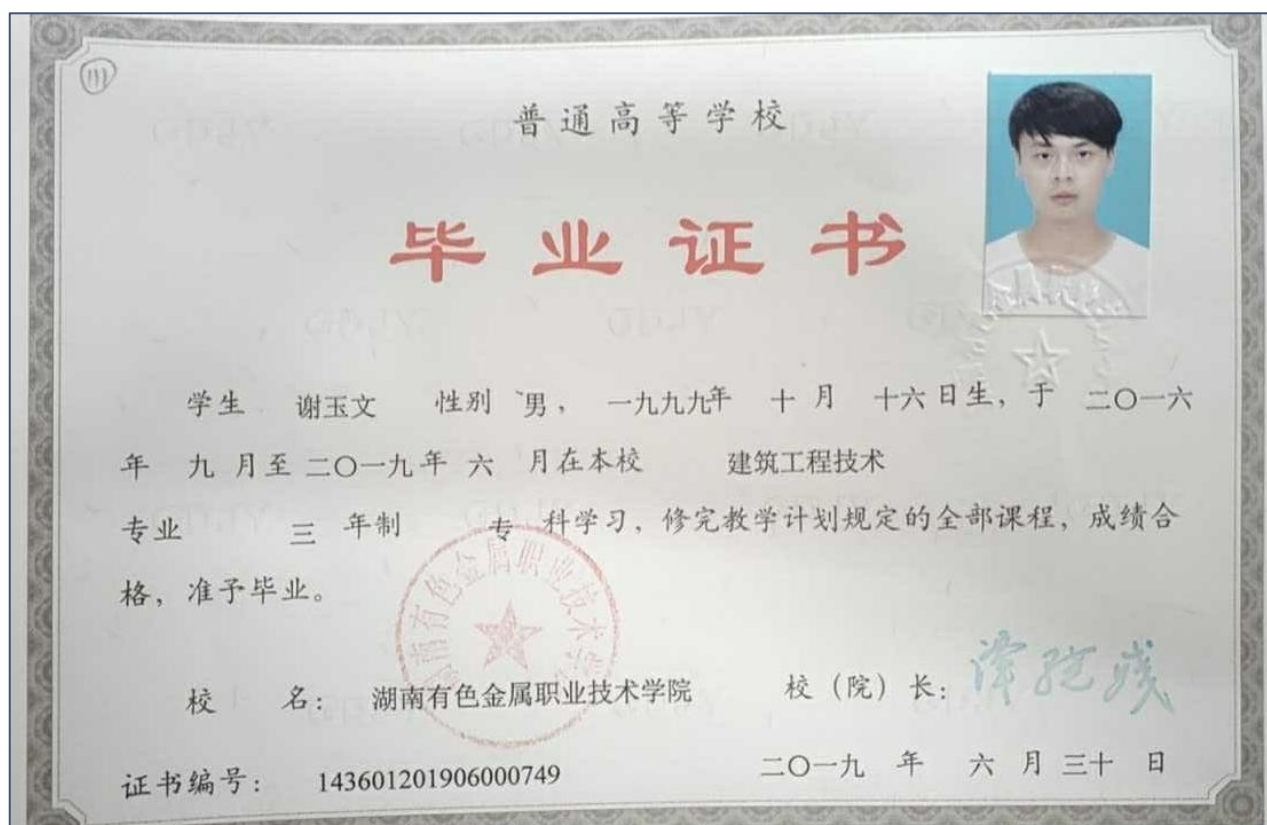 普通高等学校
毕业证书
学生 谢玉文 性别 男，一九九九年 十月 十六日生，于 二〇一六
年 九 月至二〇一九年 六 月在本校 建筑工程技术
专业 三 年制 专 科学习，修完教学计划规定的全部课程，成绩合
格，准予毕业。
湖南有色金属职业技术学院
校 名： 湖南有色金属职业技术学院 校（院）长：
证书编号： 143601201906000749 二〇一九 年 六 月 三十 日